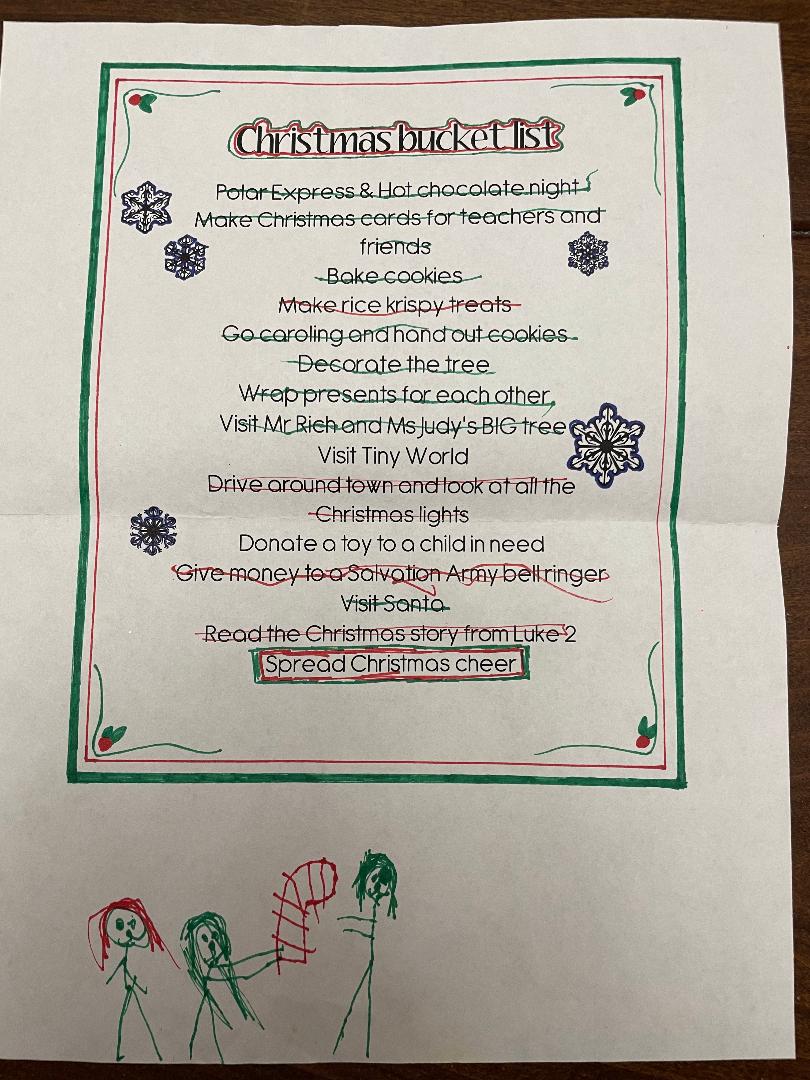 Christmas bucket list
Polar Express & Hot chocolate night
Make Christmas cards for teachers and
friends
Bake cookies
Make rice krispy treats
Go caroling and hand out cookies
Decorate the tree
Wrap presents for each other
Visit Mr Rich and Ms Judy's BIG tree
Visit Tiny World
Drive around town and look at all the
Christmas lights
Donate a toy to a child in need
Give money to a Salvation Army bell ringer
Visit Santa
Read the Christmas story from Luke 2
Spread Christmas cheer